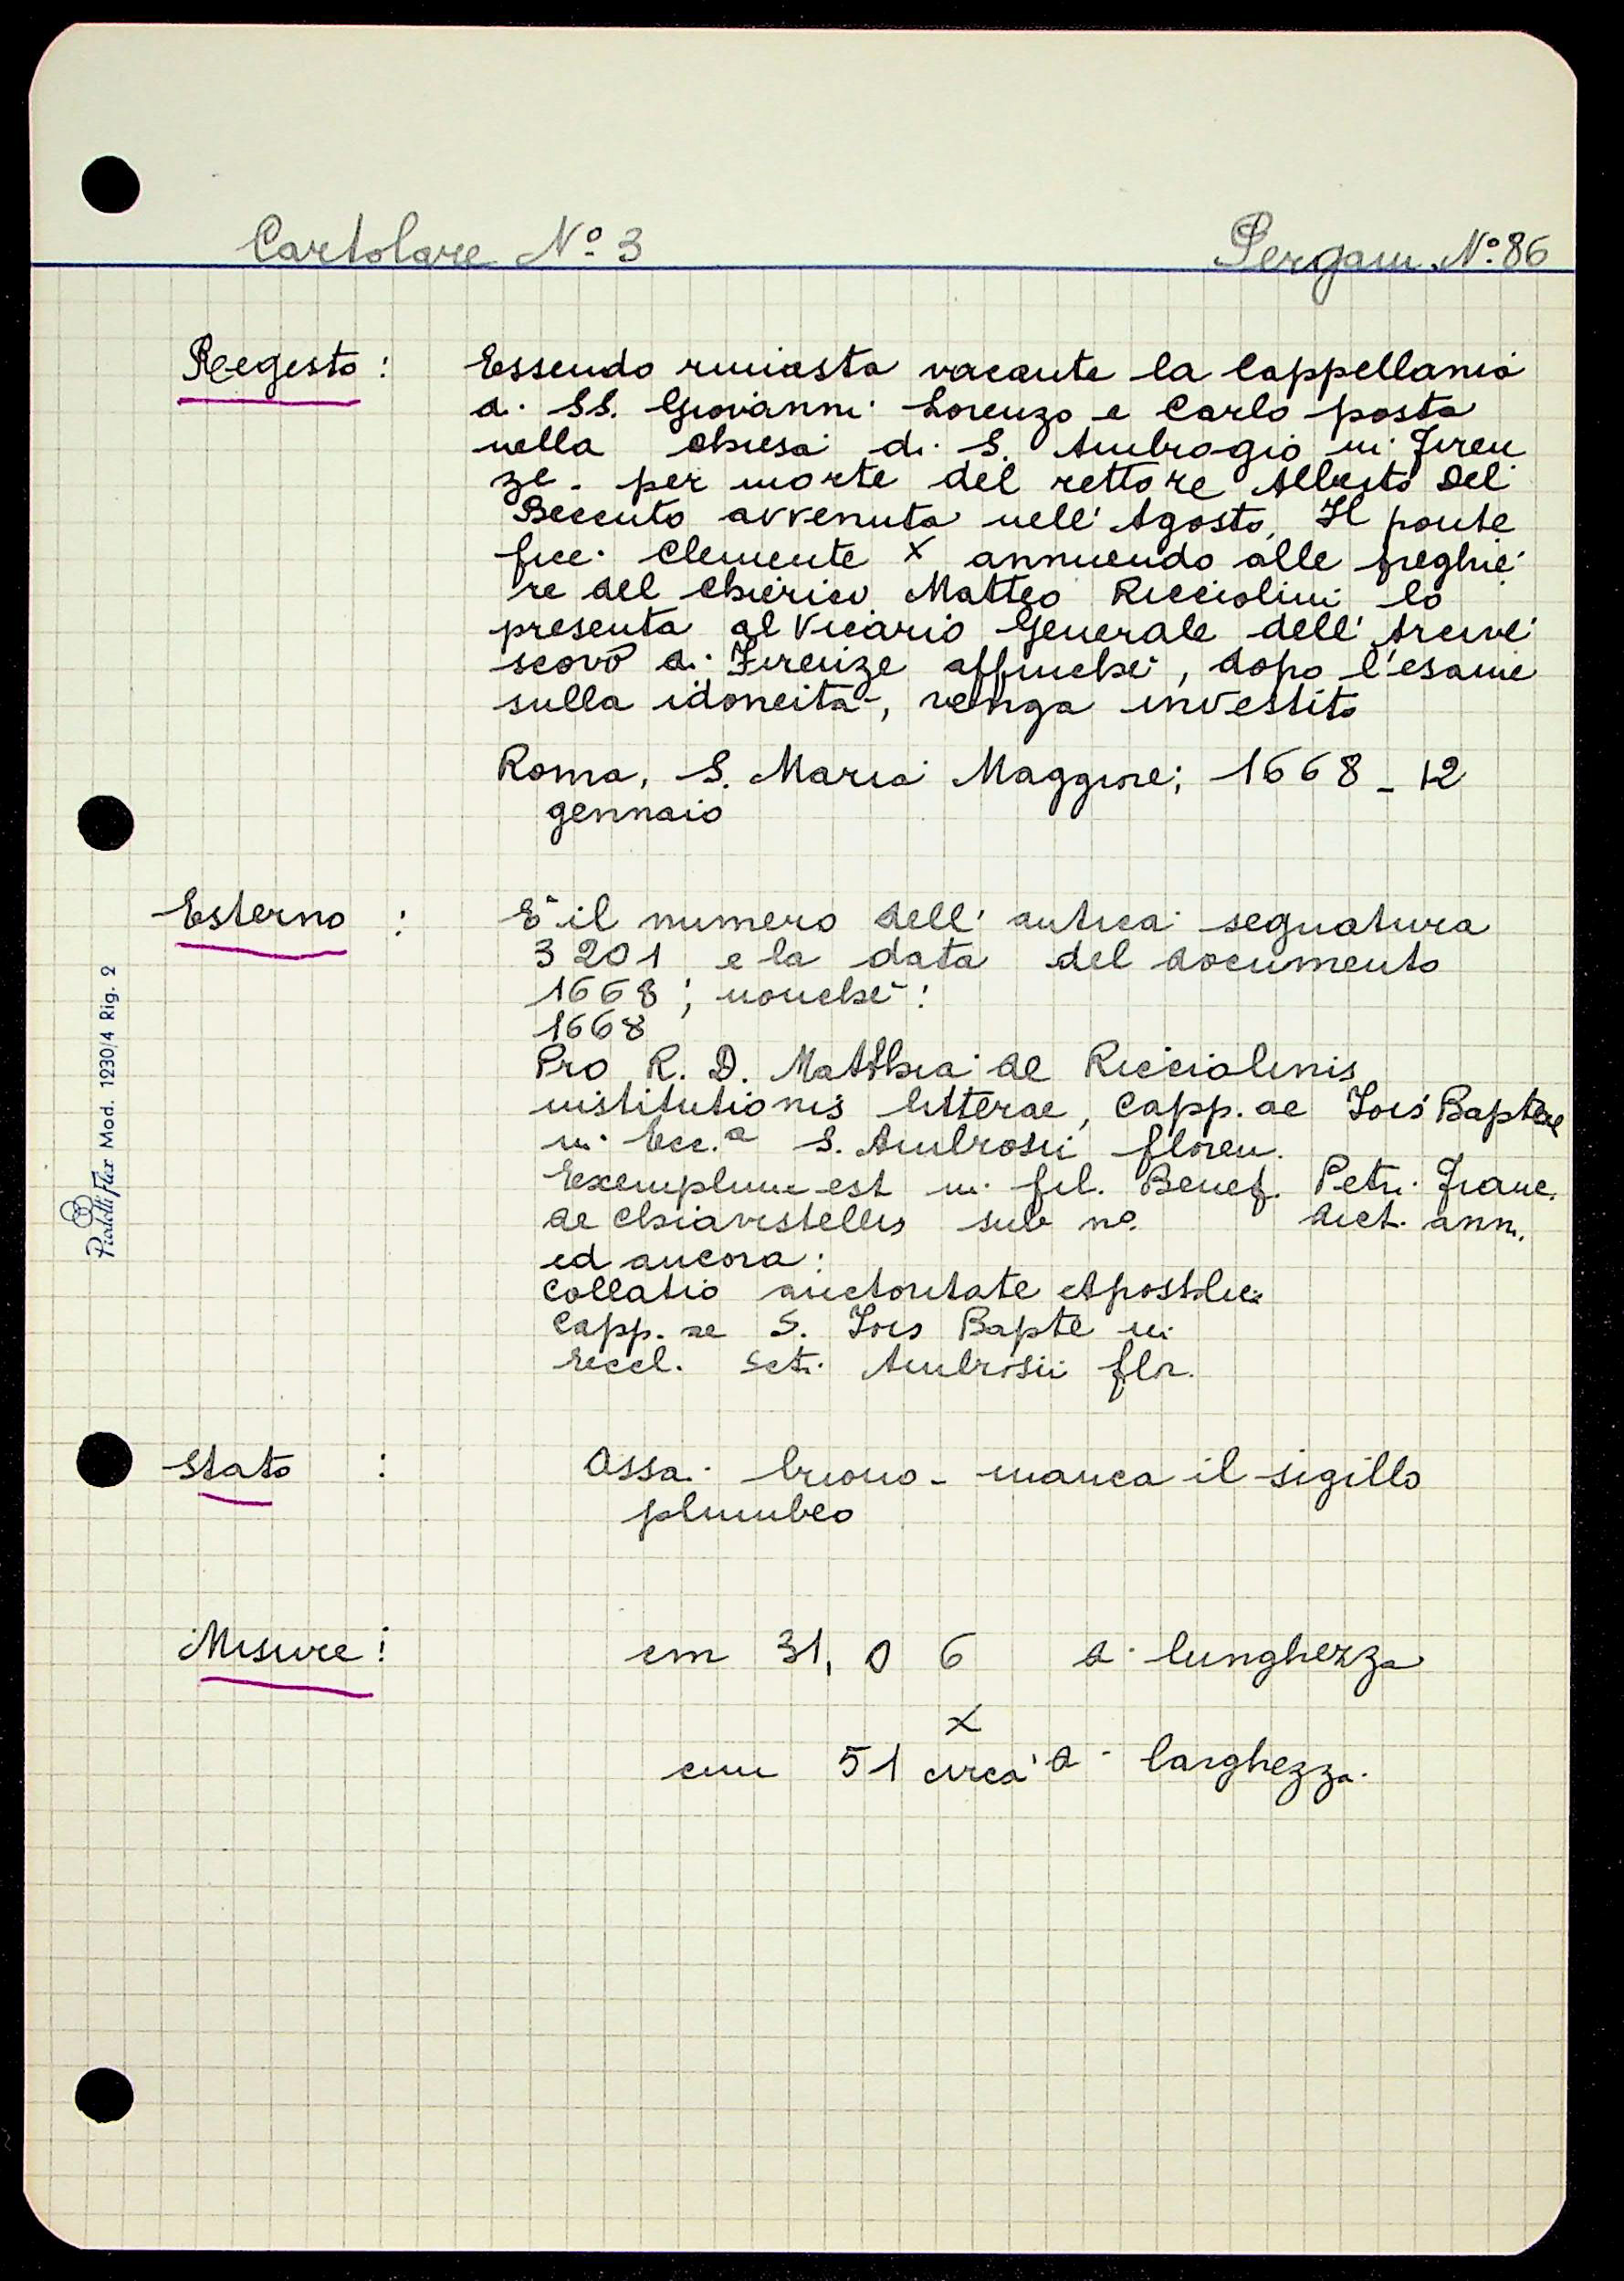 Cartolare N° 3
Pergam. N° 86
Regesto: Essendo rimasta vacante la Cappellania
di SS. Giovanni Lorenzo e Carlo posta
nella chiesa di S. Ambrogio in Firen
ze - per morte del rettore Alberto Del
Beccuto avvenuta nell'Agosto, Il ponte
fice Clemente X annuendo alle preghie
re del chierico Matteo Ricciolini lo
presenta al Vicario Generale dell'Arcive
scovo di Firenze affinché, dopo l'esame
sulla idoneità, venga investito
Roma, S. Maria Maggiore; 1668 - 12
gennaio
Esterno: E' il numero dell'antica segnatura
3201 e la data del documento
1668; nonché:
1668
Pro R. D. Matthia de Ricciolinis
institutionis litterae, Capp.ae Iois Baptae
in Ecc.a S. Ambrosii floren.
Exemplum est in fil. Benef. Petri Franc.
de Chiavistellis sub n° dict. ann.
ed ancora:
Collatio auctoritate Apostolica
Capp.ae S. Iois Bapte in
Eccl. Scti Ambrosii flor.
Stato: Assai buono - manca il sigillo
plumbeo
Misure: cm 31,06 di lunghezza
x
cm 51 circa di larghezza.
Pigna Flex Mod. 1230/4 Rig. 2